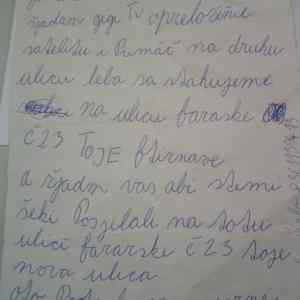 žjadam gigi TV opreloženie
satelitu i Pumáč na druhu
ulicu leba sa stahujeme
na ulicu fararske
č23 TOJE Btirnave
a žjadm vas abi stemi
šeki Poszelali na totu
ulici fárarske č23 toje
nova ulica